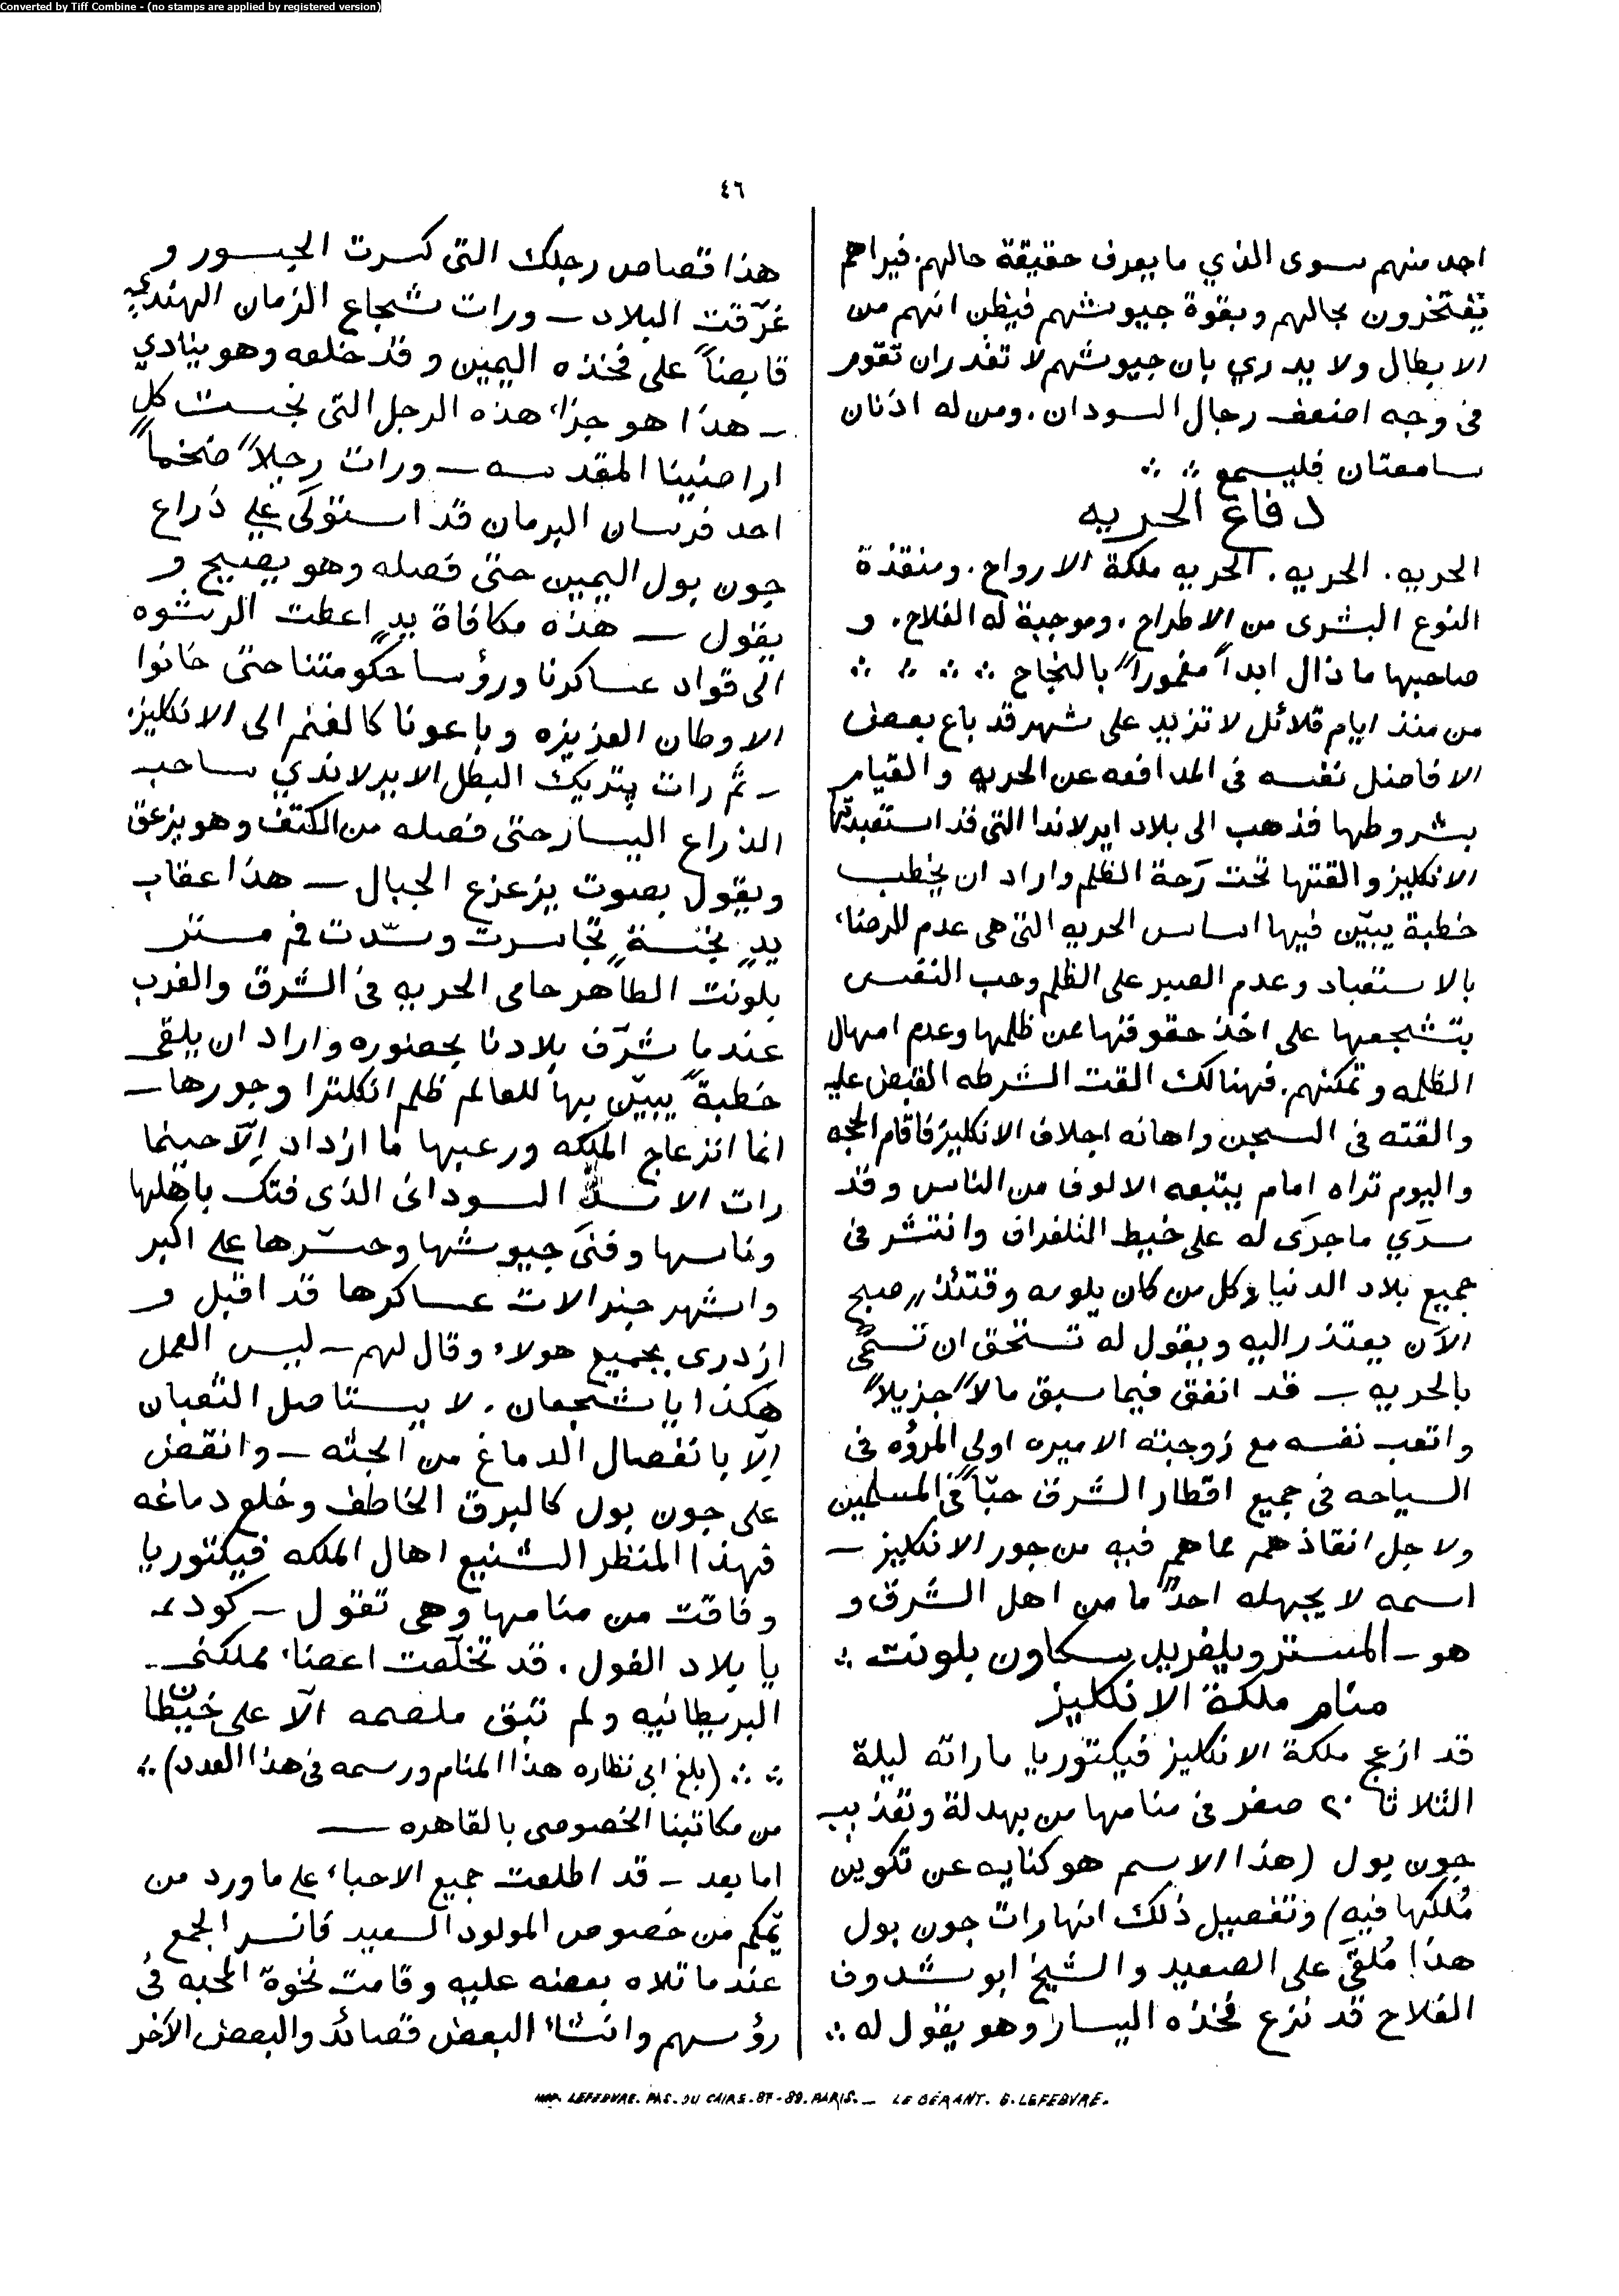 Converted by Tiff Combine - (no stamps are applied by registered version)
٤٦
احد منهم سوى الذي ما يعرف حقيقة حالهم. فيراهم
يفتخرون بحالهم وبقوة جيوشهم فيظن انهم من
الابطال ولا يدري بان جيوشهم لا تقدر ان تقوم
فى وجه اضعف رجال السودان. ومن له اذنان
سامعتان فليسمع ∴ ∴
دفاع الحريه
الحريه. الحريه. الحريه ملكة الارواح. ومنقذة
النوع البشرى من الاطراح. وموجبة له الفلاح. و
صاحبها ما ذال ابداً مغموراً بالنجاح ∴ ∴ ∴ ∴
من منذ ايام قلائل لا تزيد على شهر قد باع بعض
الافاضل نفسه فى المدافعه عن الحريه والقيام
بشروطها فذهب الى بلاد ايرلاندا التى قد استعبدتها
الانكليز والقتها تحت رَحة الظلم واراد ان يخطب
خطبة يبيّن فيها اساس الحريه التى هى عدم الرضاء
بالاستعباد وعدم الصبر على الظلم وحب النفس
بتشجعها على اخذ حقوقها من ظلمها وعدم امهال
الظلمه وتمكنهم. فهنالك القت الشرطه القبض عليه
والقته فى السجن واهانه اجلاف الانكليز فاقام الحجه
واليوم تراه امام يتبعه الالوف من الناس وقد
سرَي ما جرَى له على خيط التلغراف وانتشر فى
جميع بلاد الدنيا وكل من كان يلومه وقتئذ صبح
الآن يعتذر اليه ويقول له تستحق ان تسمَّى
بالحريه ــ قد انفق فيما سبق مالاً جزيلاً
واتعب نفسه مع زوجته الاميره اولي المروُه فى
السياحه فى جميع اقطار الشرق حبّاً فى المسلمين
ولاجل انقاذهم مما هم فيه من جور الانكليز ــ
اسمه لا يجهله احدٌ ما من اهل الشرق و
هو ــ المستر ويلفريد سكاون بلونت ∴
منام ملكة الانكليز
قد ازعج ملكة الانكليز فيكتوريا ما راته ليلة
الثلاثا ٢٠ صفر فى منامها من بهدلة وتعذيب
جون بول (هذا الاسم هو كنايه عن تكوين
مُلكها فيه) وتفصيل ذلك انها رات جون بول
هذا مُلقىً على الصعيد والشيخ ابو شدوف
الفلاح قد نزع فخذه اليسار وهو يقول له ∴
هذا قصاص رجلك التى كسرت الجسور و
غرّقت البلاد ــ ورات شجاع الزمان الهندي
قابضاً على فخذه اليمين وقد خلعه وهو ينادي
ــ هذا هو جزاء هذه الرجل التى نجست كل
اراضينا المقدسه ــ ورات رجلاً ضخماً
احد فرسان البرمان قد استوكَى علي ذراع
جون بول اليمين حتى فصله وهو يصيح و
يقول ــ هذه مكافاة يدٍ اعطت الرشوه
الى قواد عساكرنا ورؤسا حكومتنا حتى خانوا
الاوطان العزيزه وباعونا كالغنم الى الانكليز.
ــ ثم رات پتريك البطل الايرلاندي ساحب
الذراع اليسار حتى فصله من الكتف وهو يزعق
ويقول بصوت يزعزع الجبال ــ هذا عقاب
يدٍ نجسةٍ تجاسرت وسدّت فم مستر
بلونت الطاهر حامى الحريه فى الشرق والغرب
عندما شرّف بلادنا بحضوره واراد ان يلقى
خطبةً يبيّن بها للعالم ظلم انكلترا وجورها ــ
انما انزعاج الملكه ورعبها ما ازداد الّا حينما
رات الاسد السودانى الذى فتك باهلها
وناسها وفنى جيوشها وحسّرها على اكبر
واشهر جنرالات عساكرها قد اقبل و
ازدرى بجميع هولاء وقال لهم ــ ليس العمل
هكذا يا شجعان. لا يستاصل الثعبان
الّا بانفصال الدماغ من الجثه ــ وانقض
على جون بول كالبرق الخاطف وخلع دماغه
فهذا المنظر الشنيع اهال الملكه فيكتوريا
وفاقت من منامها وهى تقول ــ كودم
يا بلاد الفول. قد تخلّعت اعضاء مملكتى ــ
البريطانيه ولم تبق ملصمه الّا على خيطان
∴ ∴ (بلغ ابى نظاره هذا المنام ورسمه فى هذا العدد) ∴
من مكاتبنا الخصوصى بالقاهره ــ
اما بعد ــ قد اطلعت جميع الاحباء على ما ورد من
يمكم من خصوص المولود السعيد فانسر الجمع
عندما تلاه بعضه عليه وقامت نخوة المحبه فى
رؤسهم وانشاء البعض قصائد والبعض الآخر
IMP. LEFEBVRE. PAS. DU CAIRE. 87-89. PARIS. — LE GÉRANT. G. LEFEBVRE.